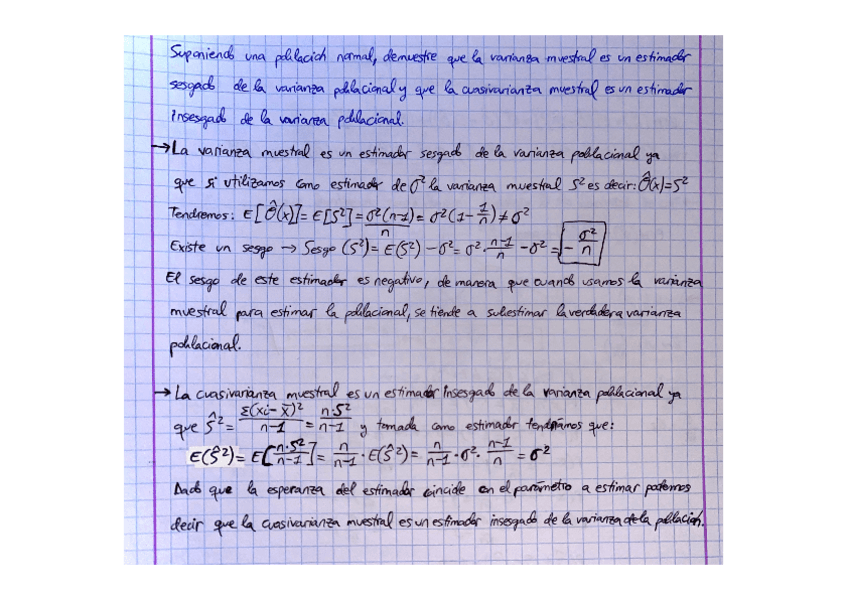 Suponiendo una población normal, demuestre que la varianza muestral es un estimador
sesgado de la varianza poblacional y que la cuasivarianza muestral es un estimador
insesgado de la varianza poblacional.
→ La varianza muestral es un estimador sesgado de la varianza poblacional ya
que si utilizamos como estimador de σ² la varianza muestral S² es decir: Ô(x)=S²
Tendremos: E[Ô(x)] = E[S²] = σ²(n-1)/n = σ²(1-1/n) ≠ σ²
Existe un sesgo → Sesgo (S²) = E(S²) - σ² = σ²·(n-1)/n - σ² = -σ²/n
El sesgo de este estimador es negativo, de manera que cuando usamos la varianza
muestral para estimar la poblacional, se tiende a subestimar la verdadera varianza
poblacional.
→ La cuasivarianza muestral es un estimador insesgado de la varianza poblacional ya
que Ŝ² = Σ(xi-x̄)²/(n-1) = n·S²/(n-1) y tomada como estimador tendríamos que:
E(Ŝ²) = E[n·S²/(n-1)] = n/(n-1) · E(Ŝ²) = n/(n-1) · σ² · (n-1)/n = σ²
Dado que la esperanza del estimador coincide con el parámetro a estimar podemos
decir que la cuasivarianza muestral es un estimador insesgado de la varianza de la población.